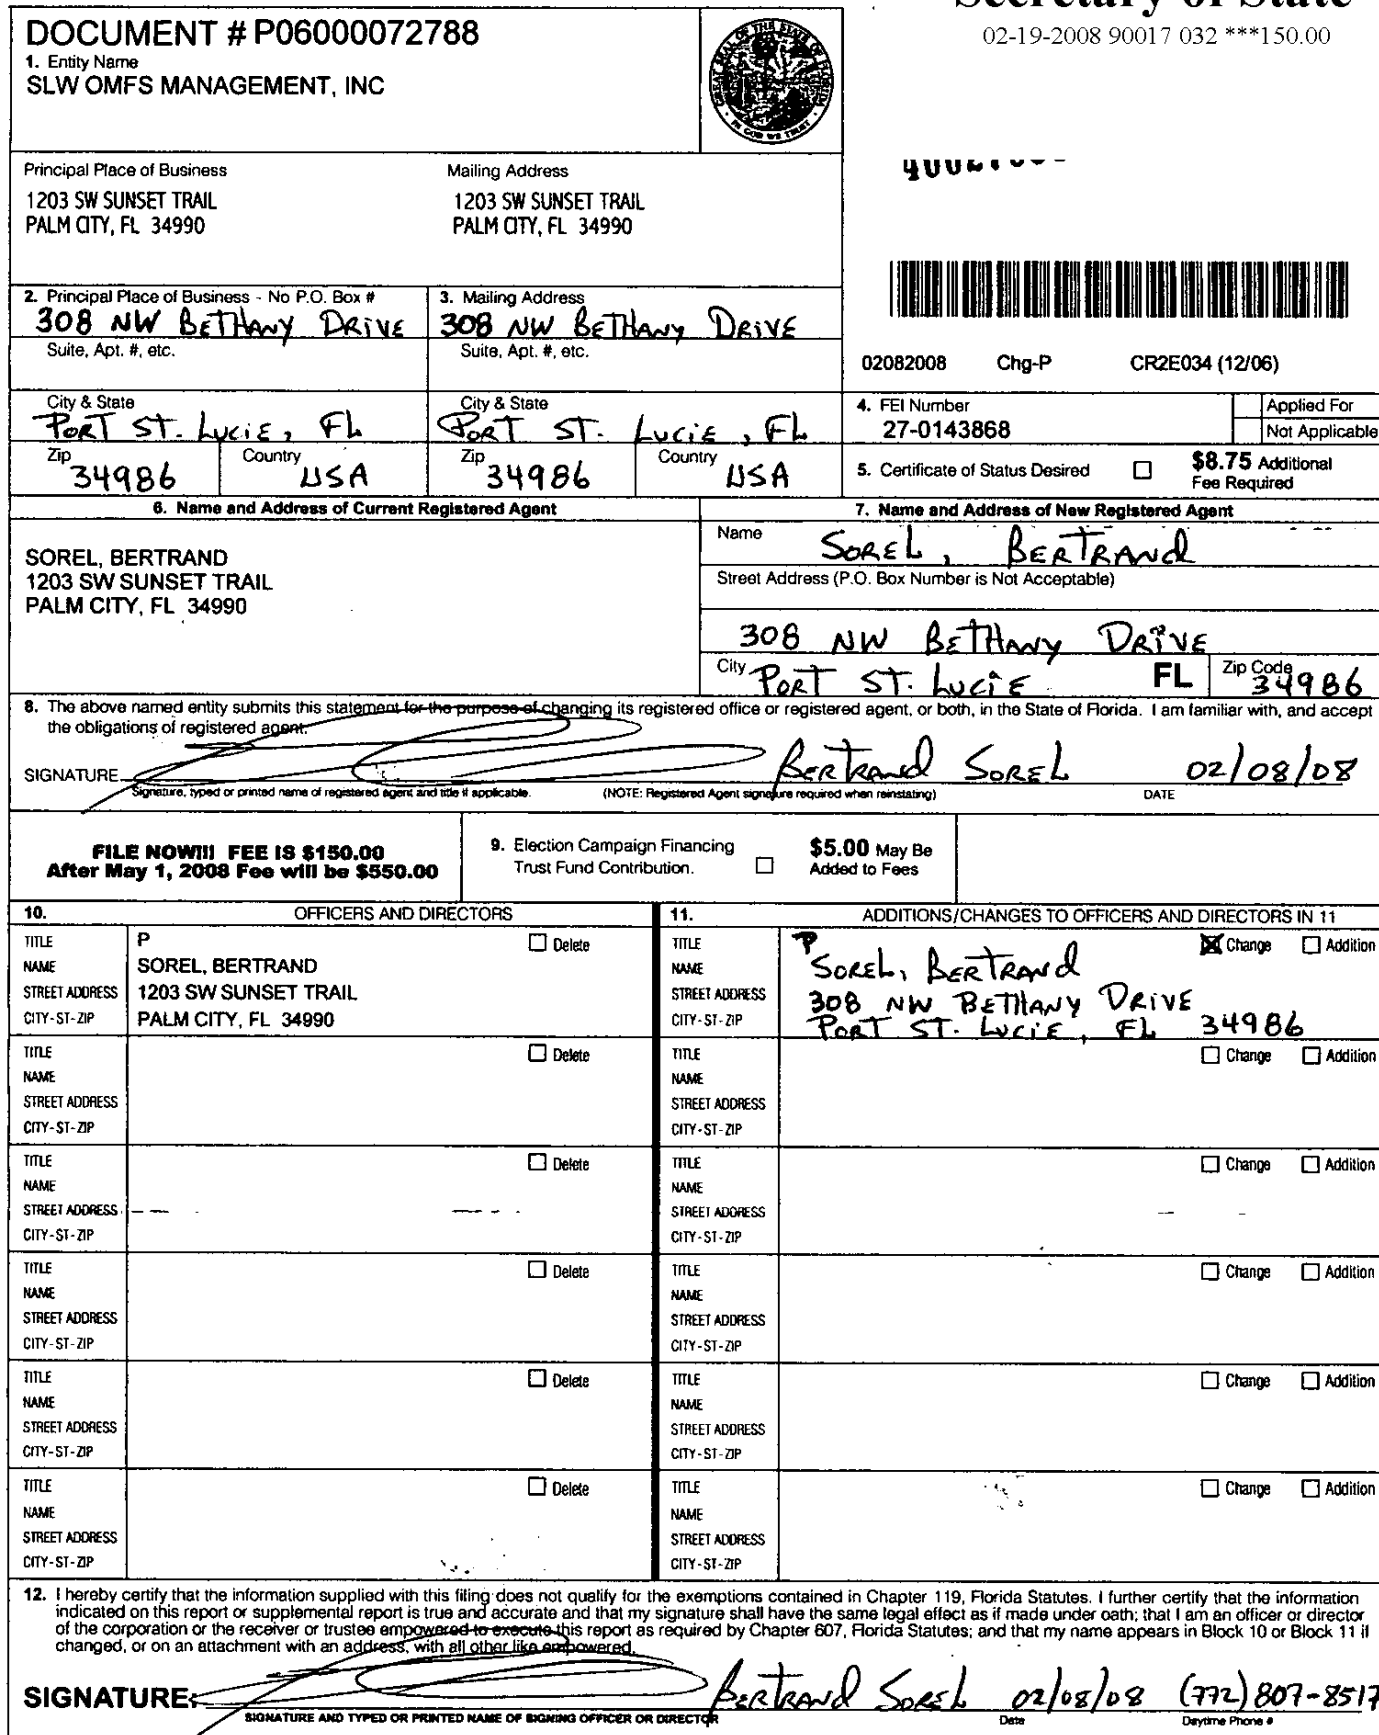 Secretary of State
02-19-2008 90017 032 ***150.00
DOCUMENT # P06000072788
1. Entity Name
SLW OMFS MANAGEMENT, INC
GREAT SEAL OF THE STATE OF FLORIDA
IN GOD WE TRUST
Principal Place of Business
1203 SW SUNSET TRAIL
PALM CITY, FL 34990
Mailing Address
1203 SW SUNSET TRAIL
PALM CITY, FL 34990
2. Principal Place of Business - No P.O. Box #
308 NW BETHANY DRIVE
3. Mailing Address
308 NW BETHANY DRIVE
Suite, Apt. #, etc.
Suite, Apt. #, etc.
02082008 Chg-P CR2E034 (12/06)
City & State
PORT ST. LUCIE, FL
City & State
PORT ST. LUCIE, FL
Zip
34986
Country
USA
Zip
34986
Country
USA
4. FEI Number
27-0143868
Applied For
Not Applicable
5. Certificate of Status Desired
$8.75 Additional
Fee Required
6. Name and Address of Current Registered Agent
SOREL, BERTRAND
1203 SW SUNSET TRAIL
PALM CITY, FL 34990
7. Name and Address of New Registered Agent
Name
SOREL, BERTRAND
Street Address (P.O. Box Number is Not Acceptable)
308 NW BETHANY DRIVE
City
PORT ST. LUCIE
FL
Zip Code
34986
8. The above named entity submits this statement for the purpose of changing its registered office or registered agent, or both, in the State of Florida. I am familiar with, and accept
the obligations of registered agent.
SIGNATURE
BERTRAND SOREL 02/08/08
Signature, typed or printed name of registered agent and title if applicable. (NOTE: Registered Agent signature required when reinstating) DATE
FILE NOW!!! FEE IS $150.00
After May 1, 2008 Fee will be $550.00
9. Election Campaign Financing
Trust Fund Contribution.
$5.00 May Be
Added to Fees
10. OFFICERS AND DIRECTORS
TITLE P Delete
NAME SOREL, BERTRAND
STREET ADDRESS 1203 SW SUNSET TRAIL
CITY-ST-ZIP PALM CITY, FL 34990
TITLE Delete
NAME
STREET ADDRESS
CITY-ST-ZIP
TITLE Delete
NAME
STREET ADDRESS
CITY-ST-ZIP
TITLE Delete
NAME
STREET ADDRESS
CITY-ST-ZIP
TITLE Delete
NAME
STREET ADDRESS
CITY-ST-ZIP
TITLE Delete
NAME
STREET ADDRESS
CITY-ST-ZIP
11. ADDITIONS/CHANGES TO OFFICERS AND DIRECTORS IN 11
TITLE P Change Addition
NAME SOREL, BERTRAND
STREET ADDRESS 308 NW BETHANY DRIVE
CITY-ST-ZIP PORT ST. LUCIE, FL 34986
TITLE Change Addition
NAME
STREET ADDRESS
CITY-ST-ZIP
TITLE Change Addition
NAME
STREET ADDRESS
CITY-ST-ZIP
TITLE Change Addition
NAME
STREET ADDRESS
CITY-ST-ZIP
TITLE Change Addition
NAME
STREET ADDRESS
CITY-ST-ZIP
TITLE Change Addition
NAME
STREET ADDRESS
CITY-ST-ZIP
12. I hereby certify that the information supplied with this filing does not qualify for the exemptions contained in Chapter 119, Florida Statutes. I further certify that the information
indicated on this report or supplemental report is true and accurate and that my signature shall have the same legal effect as if made under oath; that I am an officer or director
of the corporation or the receiver or trustee empowered to execute this report as required by Chapter 607, Florida Statutes; and that my name appears in Block 10 or Block 11 if
changed, or on an attachment with an address, with all other like empowered.
SIGNATURE:
BERTRAND SOREL 02/08/08 (772) 807-8517
SIGNATURE AND TYPED OR PRINTED NAME OF SIGNING OFFICER OR DIRECTOR Date Daytime Phone #